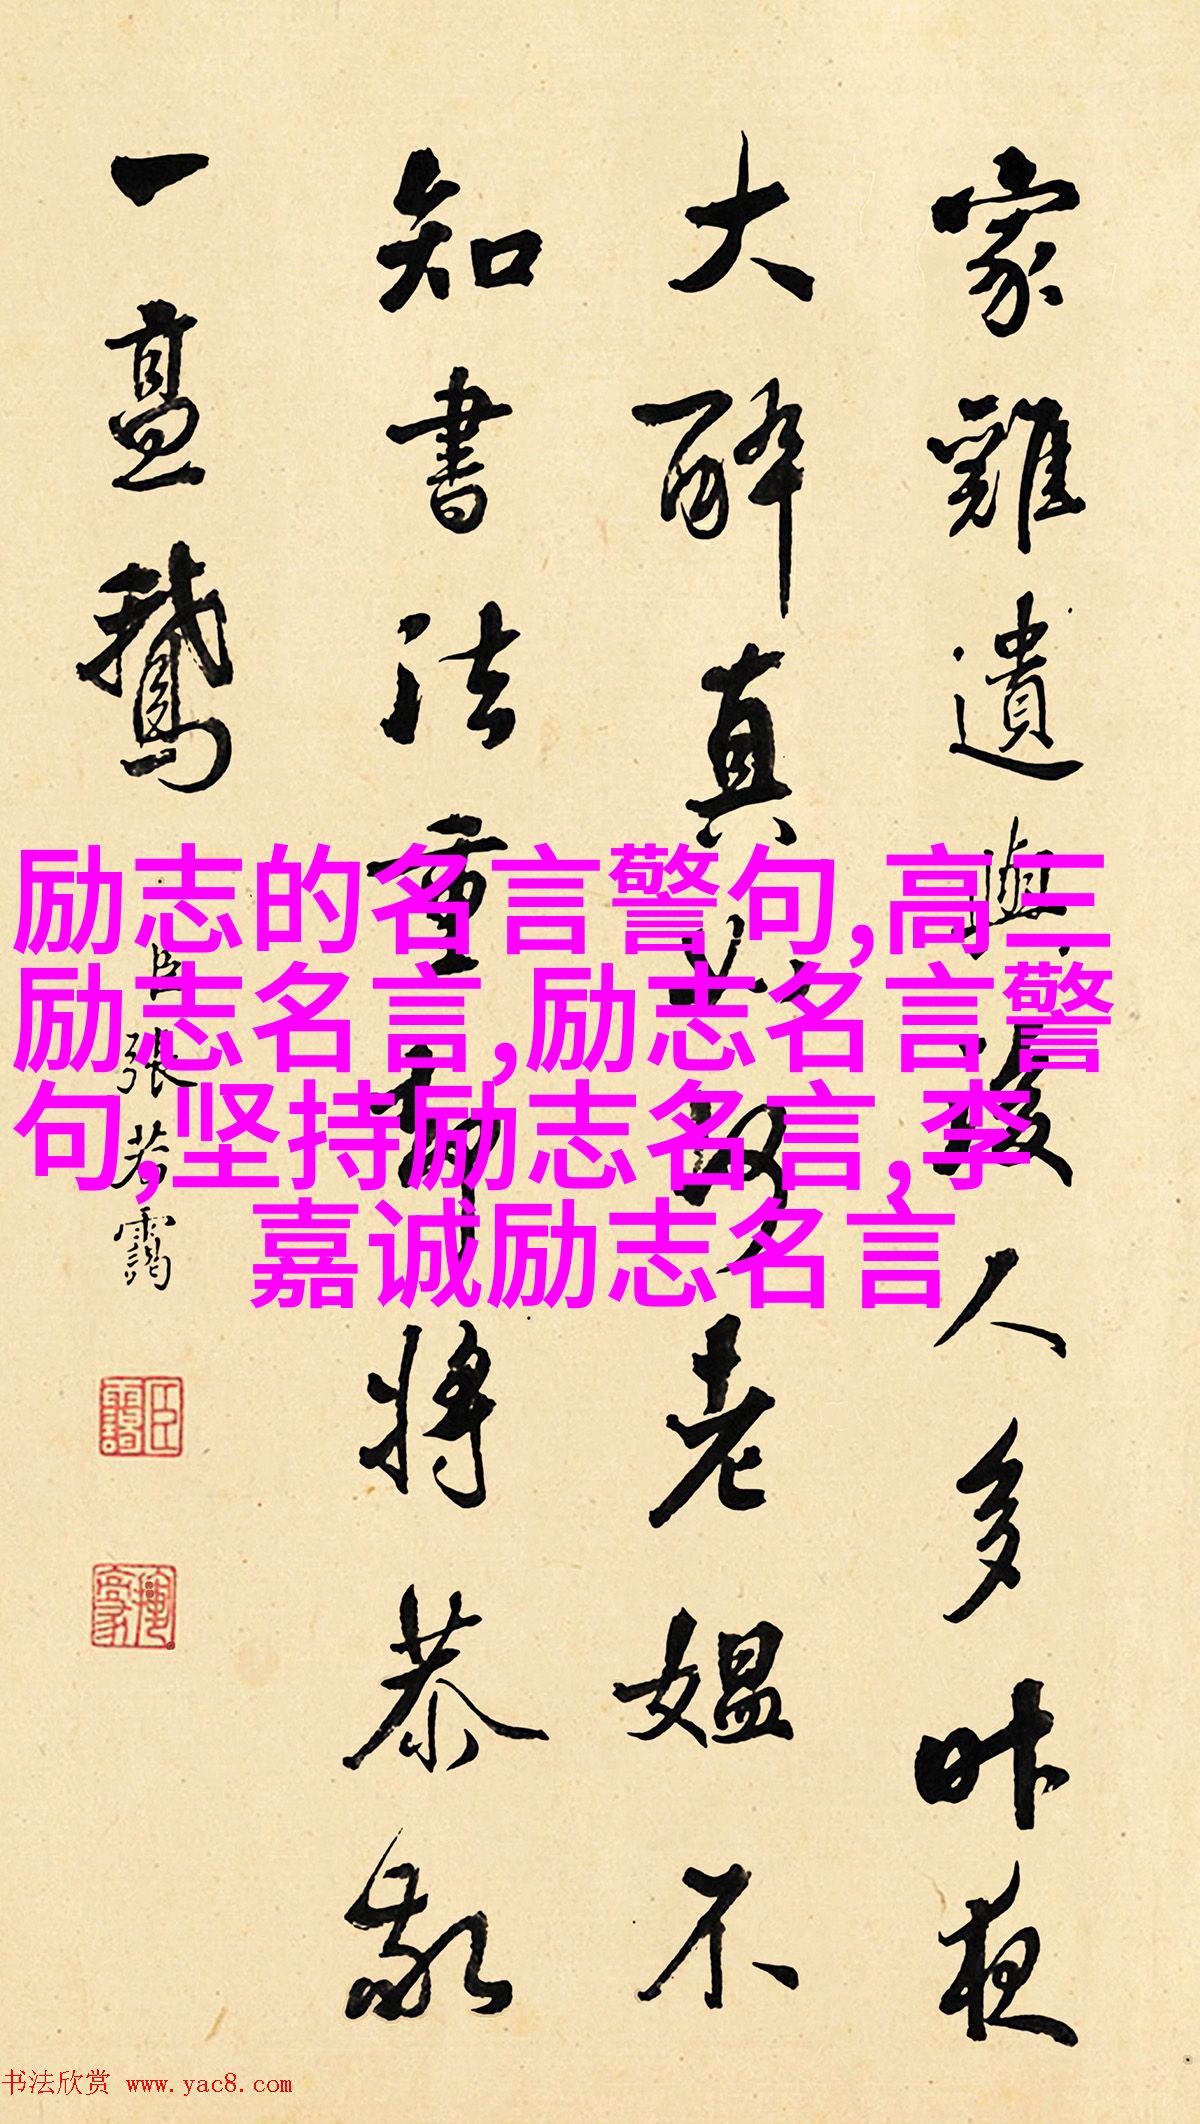 家雞遺與後人多昨夜
大醉真老媼不
知書法重將恭敬
一鵝
臣張若靄
励志的名言警句,高三
励志名言,励志名言警
句,坚持励志名言,李
嘉诚励志名言
书法欣赏 www.yac8.com